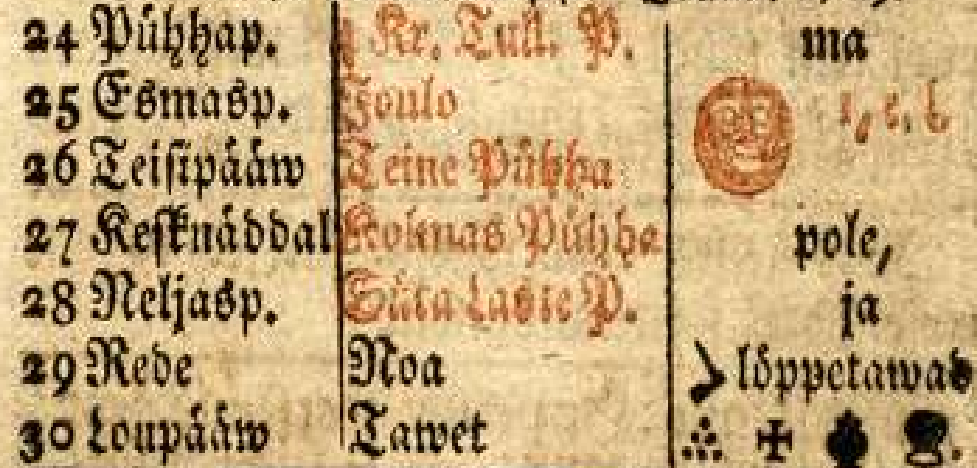 24 Pühhap. 4 Kr. Tull. P. ma
25 Esmasp. Joulo 1, e. l.
26 Teisipääw Teine Pühha
27 Kesknäddal Kolmas Pühha pole,
28 Neljasp. Süta Laste P. ja
29 Rede Noa löppetawad
30 Loupääw Tawet